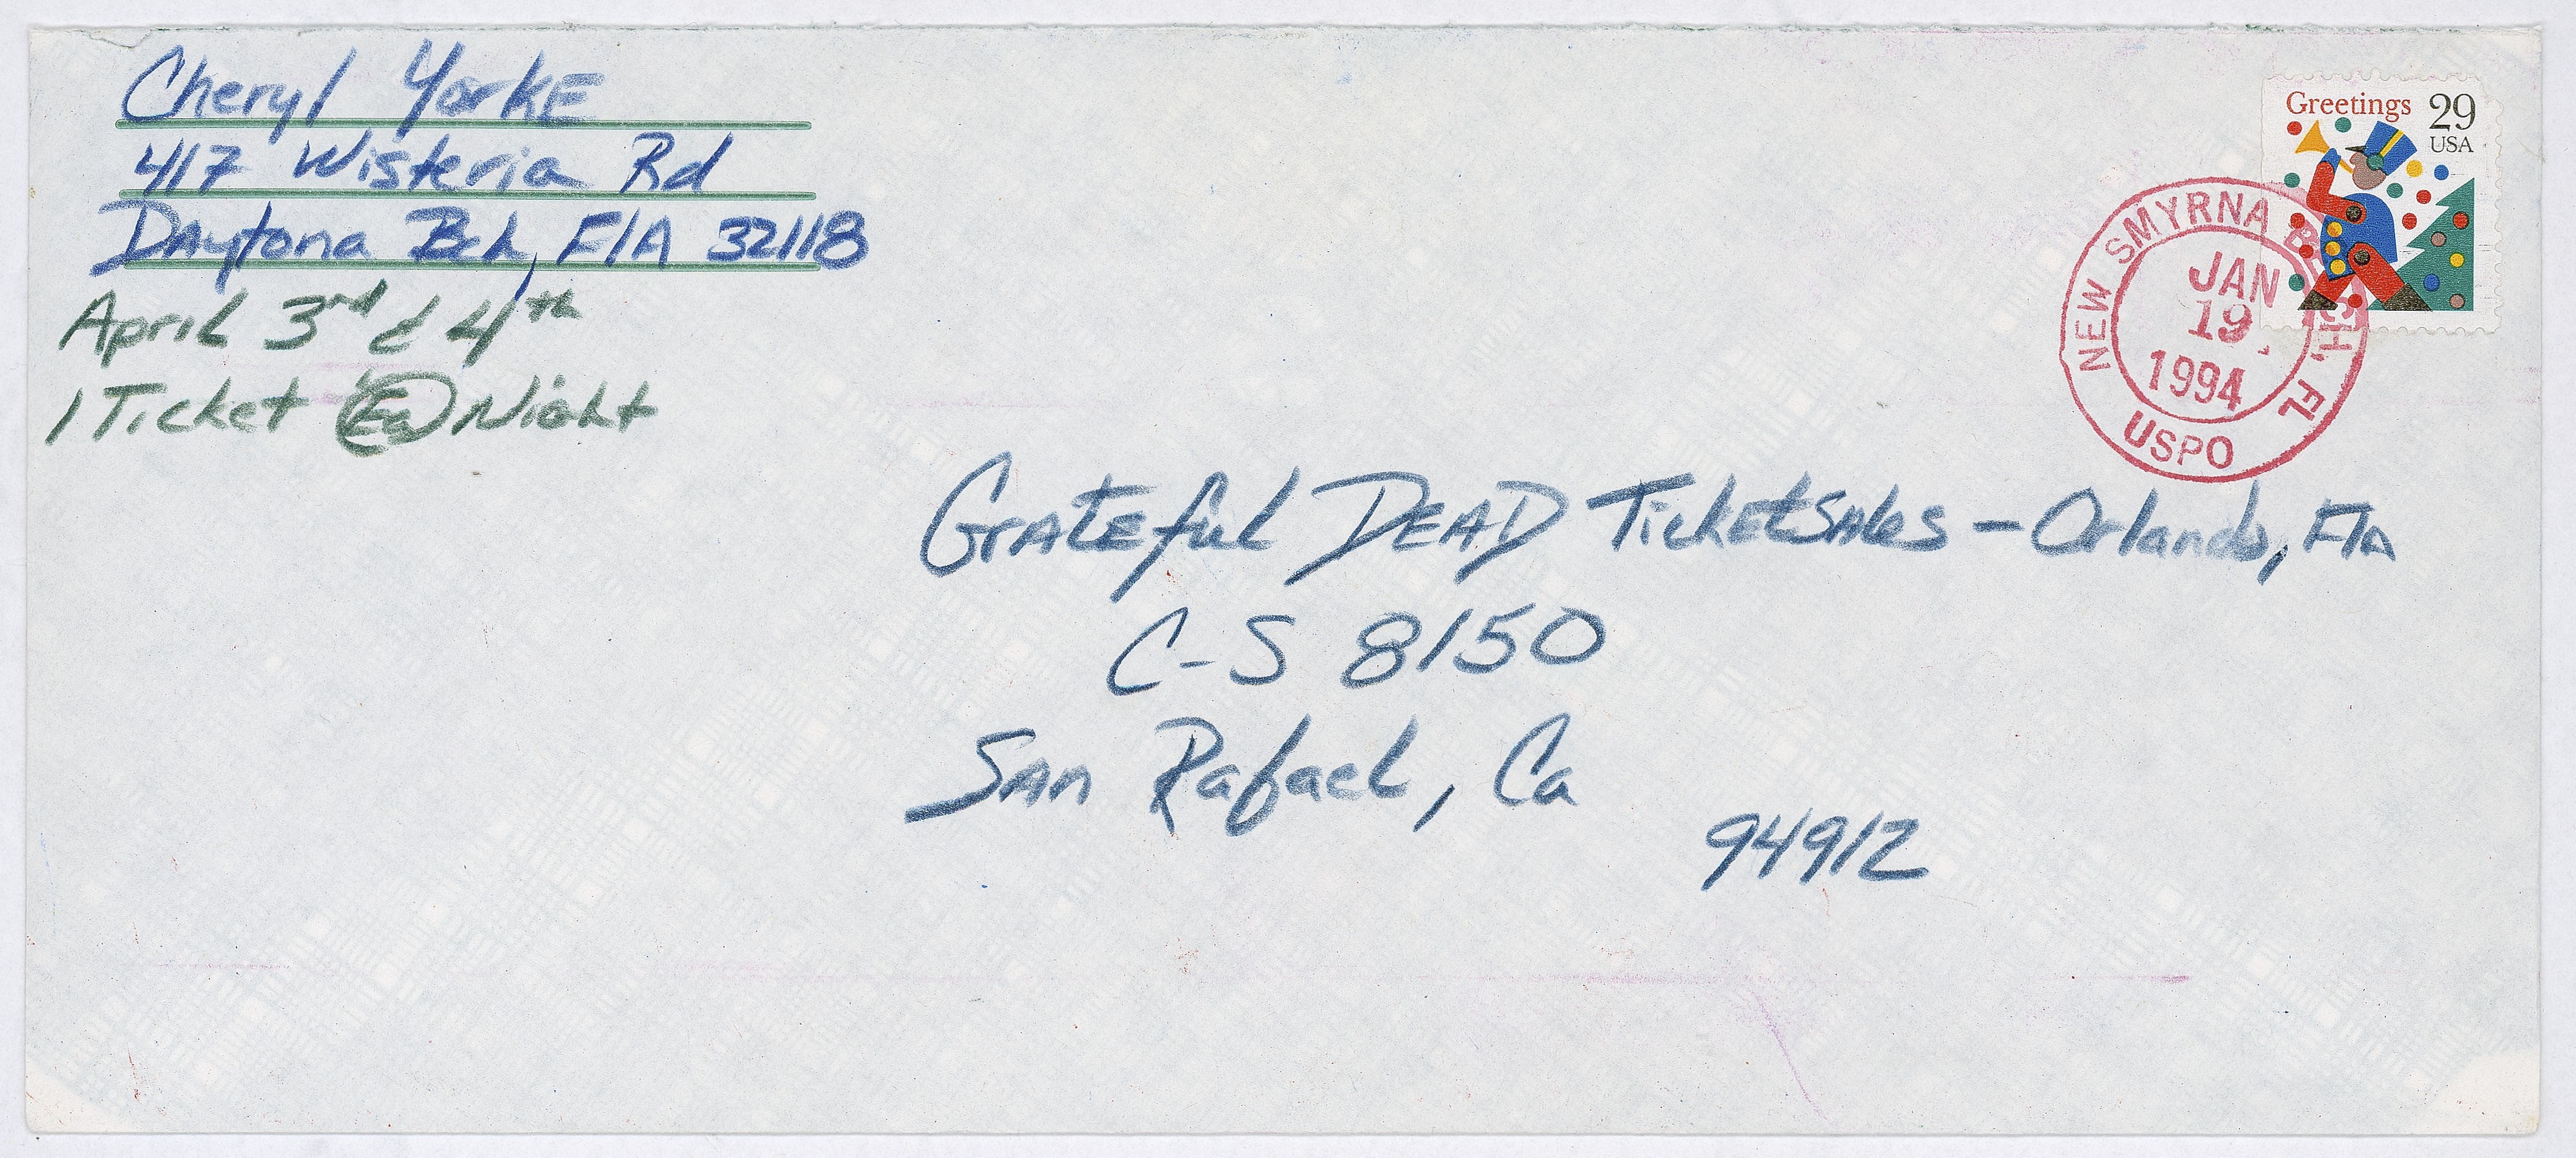 Cheryl YorkE
417 Wisteria Rd
Daytona Bch, FlA 32118
April 3rd & 4th
1 Ticket Ea Night
Greetings 29
USA
NEW SMYRNA BEACH, FL
JAN
19
1994
USPO
GrATEful DEAD TicketSAles - Orlando, FlA
C-S 8150
SAn Rafael, Ca
94912